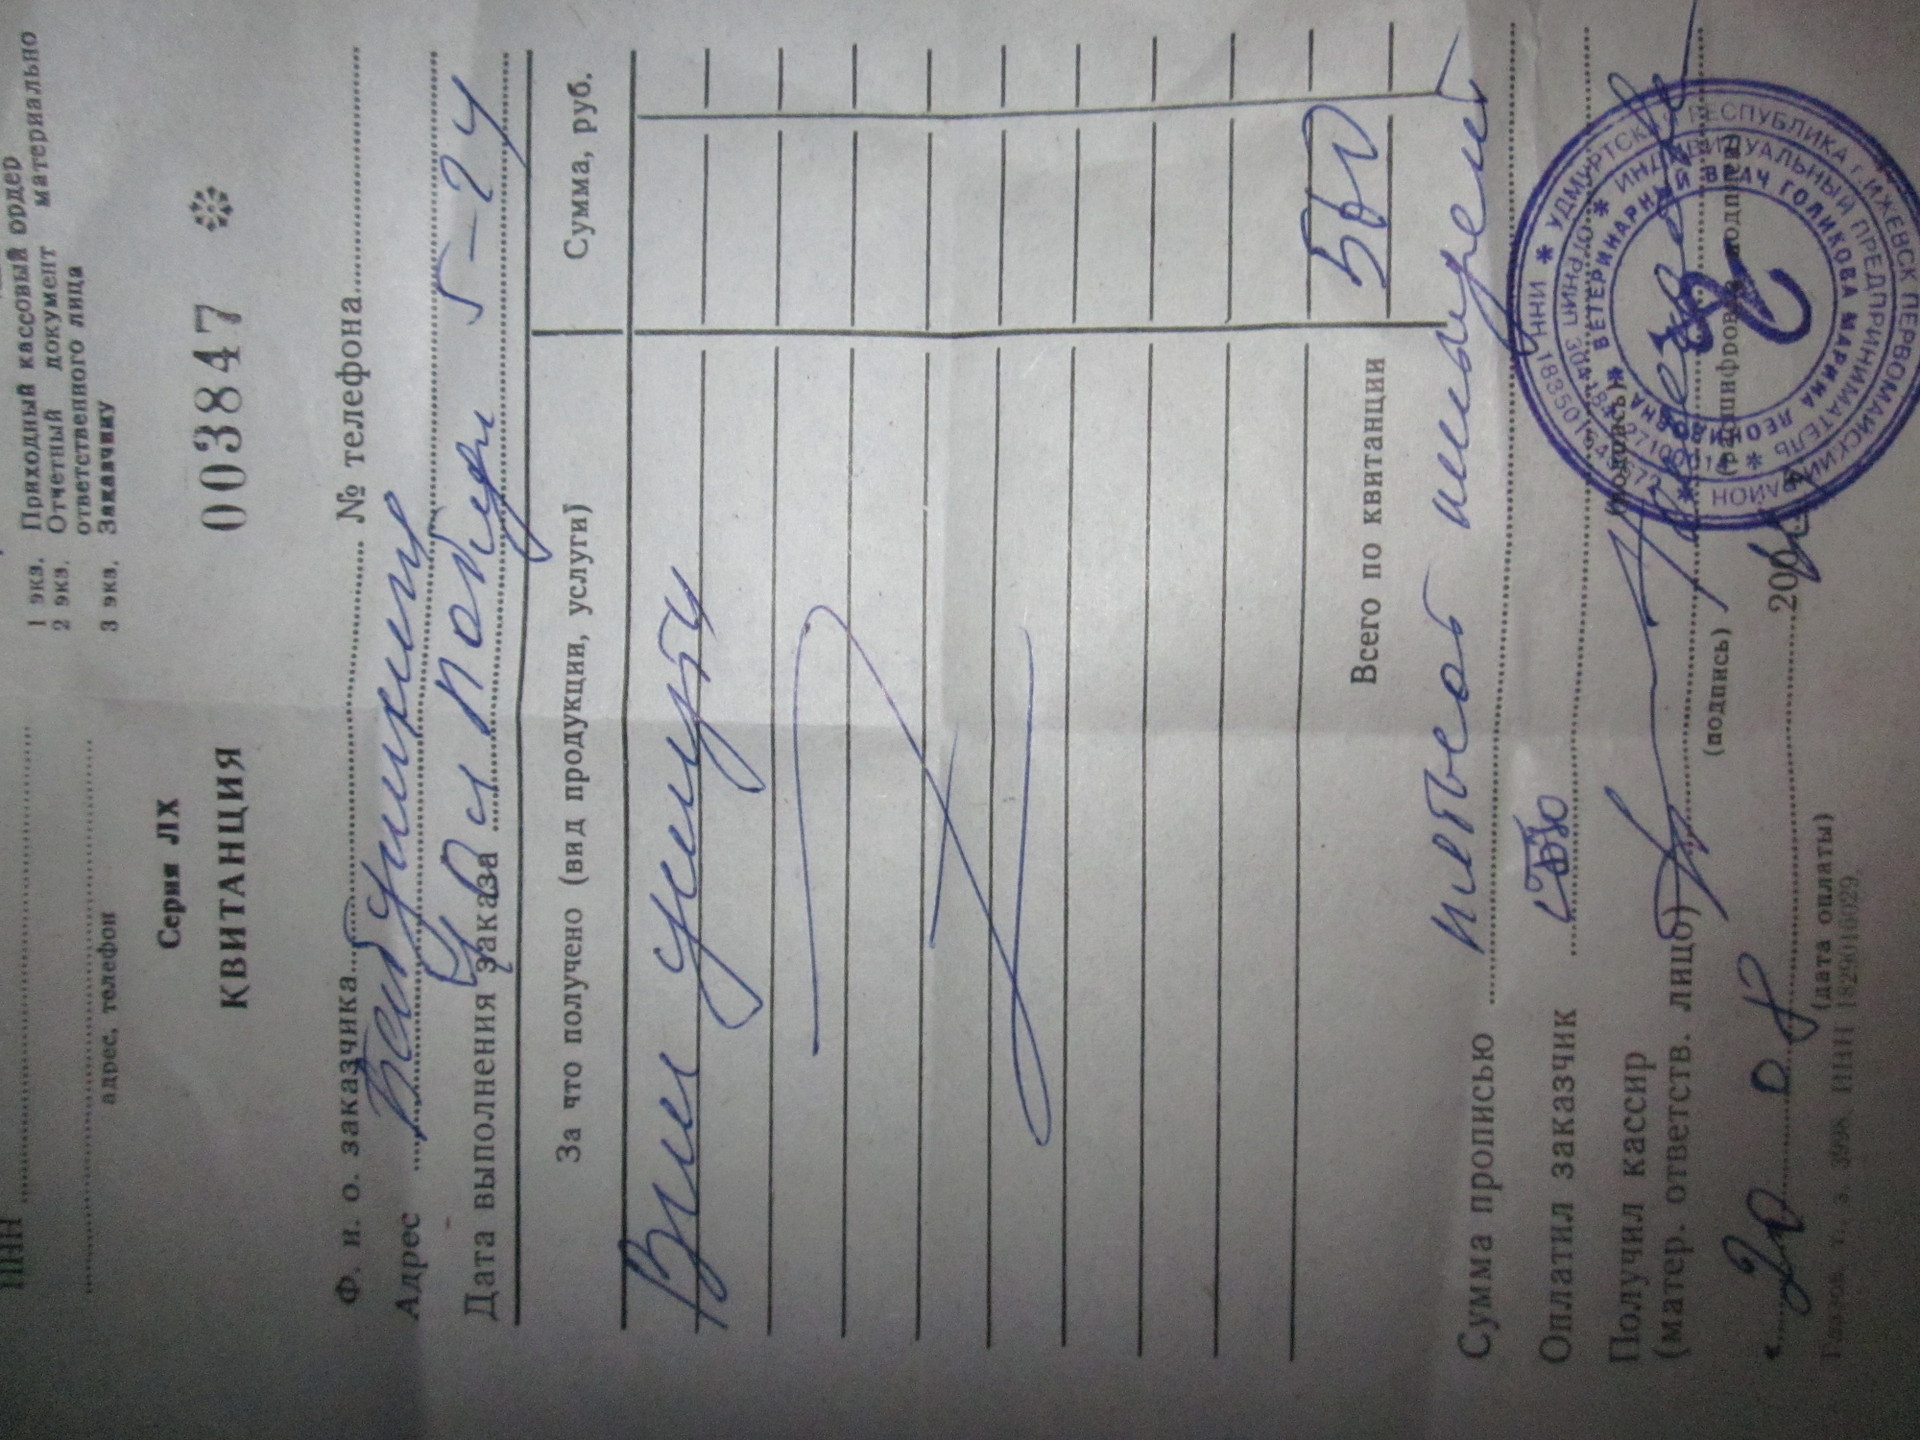 ИНН
1 экз. Приходный кассовый ордер
2 экз. Отчетный документ материально
ответственного лица
3 экз. Заказчику
адрес, телефон
Серия ЛХ
КВИТАНЦИЯ 003847
Ф. и. о. заказчика № телефона
Адрес
Дата выполнения заказа 5-24
За что получено (вид продукции, услуги) Сумма, руб.
Вет услуги
Всего по квитанции 550
Сумма прописью пятьсот пятьдесят
Оплатил заказчик
Получил кассир
(матер. ответств. лицо)
(подпись) (расшифровка подписи)
(подпись)
« 20 200
(дата оплаты)
УДМУРТСКАЯ РЕСПУБЛИКА г. ИЖЕВСК ПЕРВОМАЙСКИЙ РАЙОН
ИНДИВИДУАЛЬНЫЙ ПРЕДПРИНИМАТЕЛЬ
ВЕТЕРИНАРНЫЙ ВРАЧ ГОЛИКОВА МАРИНА ЛЕОНИДОВНА